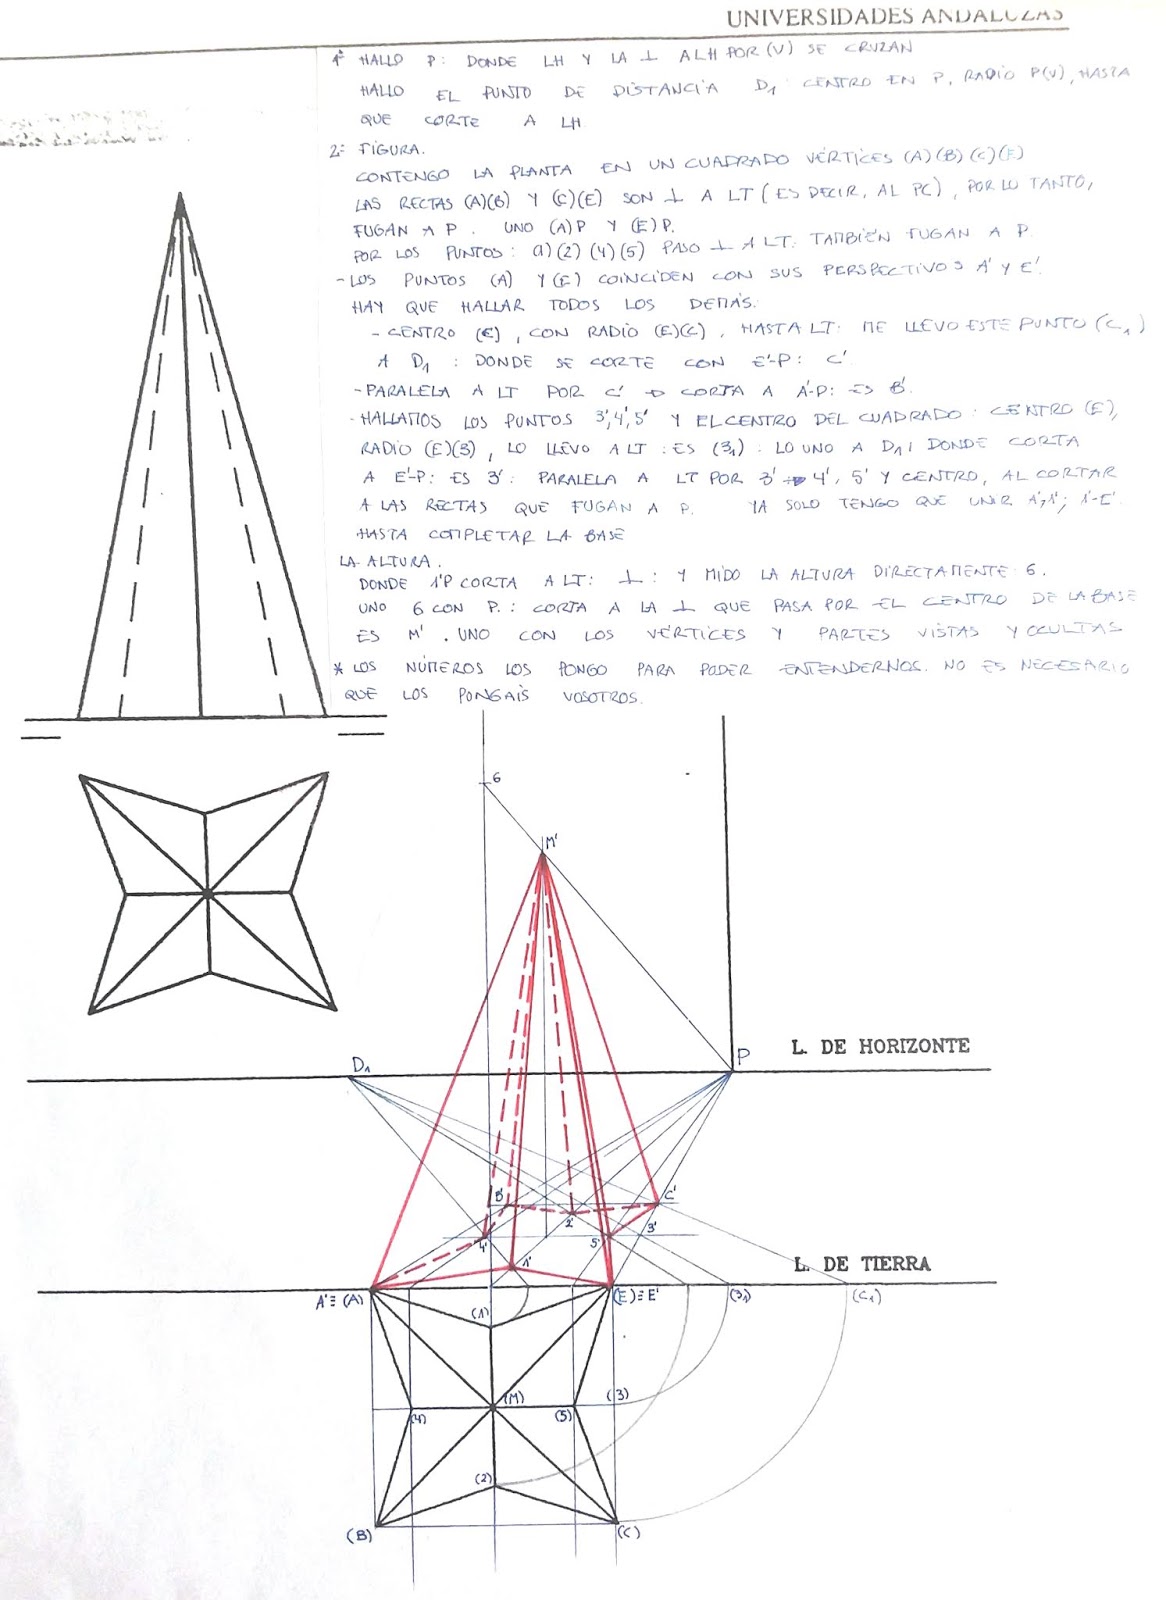 UNIVERSIDADES ANDALUZAS
1º HALLO P: DONDE LH Y LA ⊥ A LH POR (V) SE CRUZAN
HALLO EL PUNTO DE DISTANCIA D₁ CENTRO EN P, RADIO P(V), HASTA
QUE CORTE A LH
2º FIGURA.
CONTENGO LA PLANTA EN UN CUADRADO VÉRTICES (A)(B)(C)(E)
LAS RECTAS (A)(B) Y (C)(E) SON ⊥ A LT (ES DECIR, AL PC), POR LO TANTO,
FUGAN A P. UNO (A)P Y (E)P.
POR LOS PUNTOS: (1)(2)(4)(5) PASO ⊥ A LT. TAMBIÉN FUGAN A P.
- LOS PUNTOS (A) Y (E) COINCIDEN CON SUS PERSPECTIVOS A' Y E'.
HAY QUE HALLAR TODOS LOS DEMÁS.
- CENTRO (E), CON RADIO (E)(C), HASTA LT. ME LLEVO ESTE PUNTO (C₁)
A D₁: DONDE SE CORTE CON E'-P: C'
- PARALELA A LT POR C' → CORTA A A'-P: ES B'.
- HALLAMOS LOS PUNTOS 3',4',5' Y EL CENTRO DEL CUADRADO: CENTRO (E),
RADIO (E)(3), LO LLEVO A LT: ES (3₁): LO UNO A D₁, DONDE CORTA
A E'-P: ES 3': PARALELA A LT POR 3' → 4', 5' Y CENTRO, AL CORTAR
A LAS RECTAS QUE FUGAN A P. YA SOLO TENGO QUE UNIR A',1'; 1'-E'.
HASTA COMPLETAR LA BASE
LA ALTURA.
DONDE 1'P CORTA A LT: ⊥: Y MIDO LA ALTURA DIRECTAMENTE 6.
UNO 6 CON P.: CORTA A LA ⊥ QUE PASA POR EL CENTRO DE LA BASE
ES M'. UNO CON LOS VÉRTICES Y PARTES VISTAS Y OCULTAS
* LOS NÚMEROS LOS PONGO PARA PODER ENTENDERNOS. NO ES NECESARIO
QUE LOS PONGAIS VOSOTROS.
6
M'
L. DE HORIZONTE
D₁
P
B'
C'
2'
3'
4'
5'
1'
L. DE TIERRA
A'≡(A)
(1)
(E)≡E'
(3₁)
(C₁)
(M)
(3)
(4)
(5)
(2)
(B)
(C)